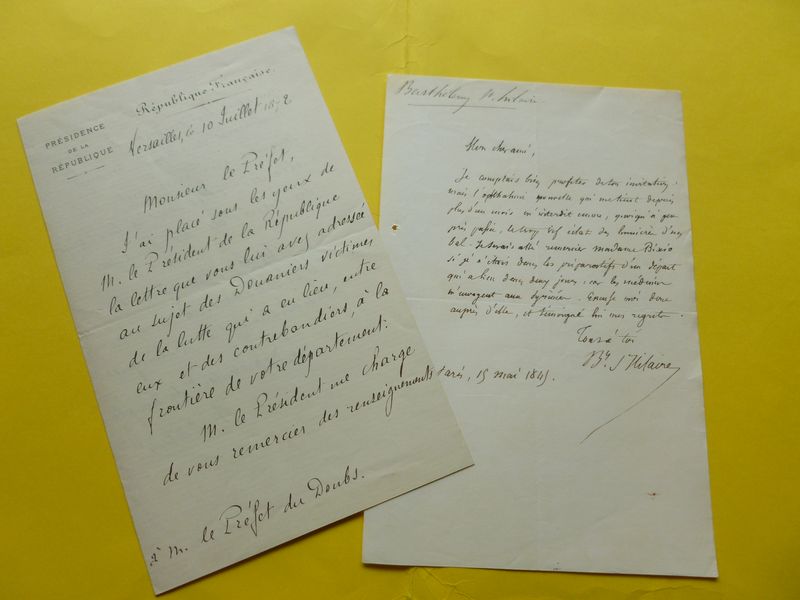 République Française.
PRÉSIDENCE
DE LA
RÉPUBLIQUE
Versailles, le 10 Juillet 1872
Monsieur le Préfet,
J'ai placé sous les yeux de
M. le Président de la République
la lettre que vous lui avez adressée
au sujet des Douaniers victimes
de la lutte qui a eu lieu, entre
eux et des contrebandiers, à la
frontière de votre département.
M. le Président me charge
de vous remercier des renseignements
à M. le Préfet du Doubs.
Barthélemy St. hilaire
Mon cher ami,
Je comptais bien profiter de ton invitation;
mais l'ophthalmie qui me tient depuis
plus d'un mois m'interdit encore, quoiqu'à peu
près passée, le trop vif éclat des lumières d'un
bal. Je serais allé remercier madame Bixio
si je n'étais dans les préparatifs d'un départ
qui a lieu dans deux jours; car les médecins
m'envoyent aux Pyrénées. Excuse moi donc
auprès d'elle, et témoigne lui mes regrets.
Tout à toi
By. St Hilaire
Paris, 15 mai 1845.